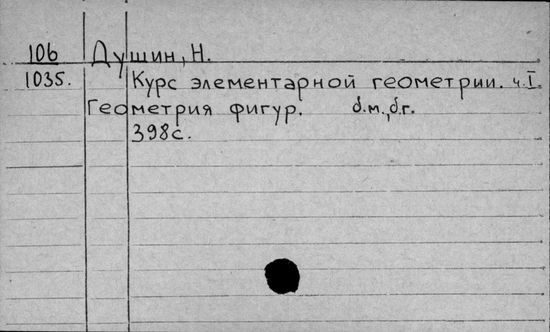 106 Душин, Н.
1035. Курс элементарной геометрии. ч.I.
Геометрия фигур. б.м., б.г.
398с.